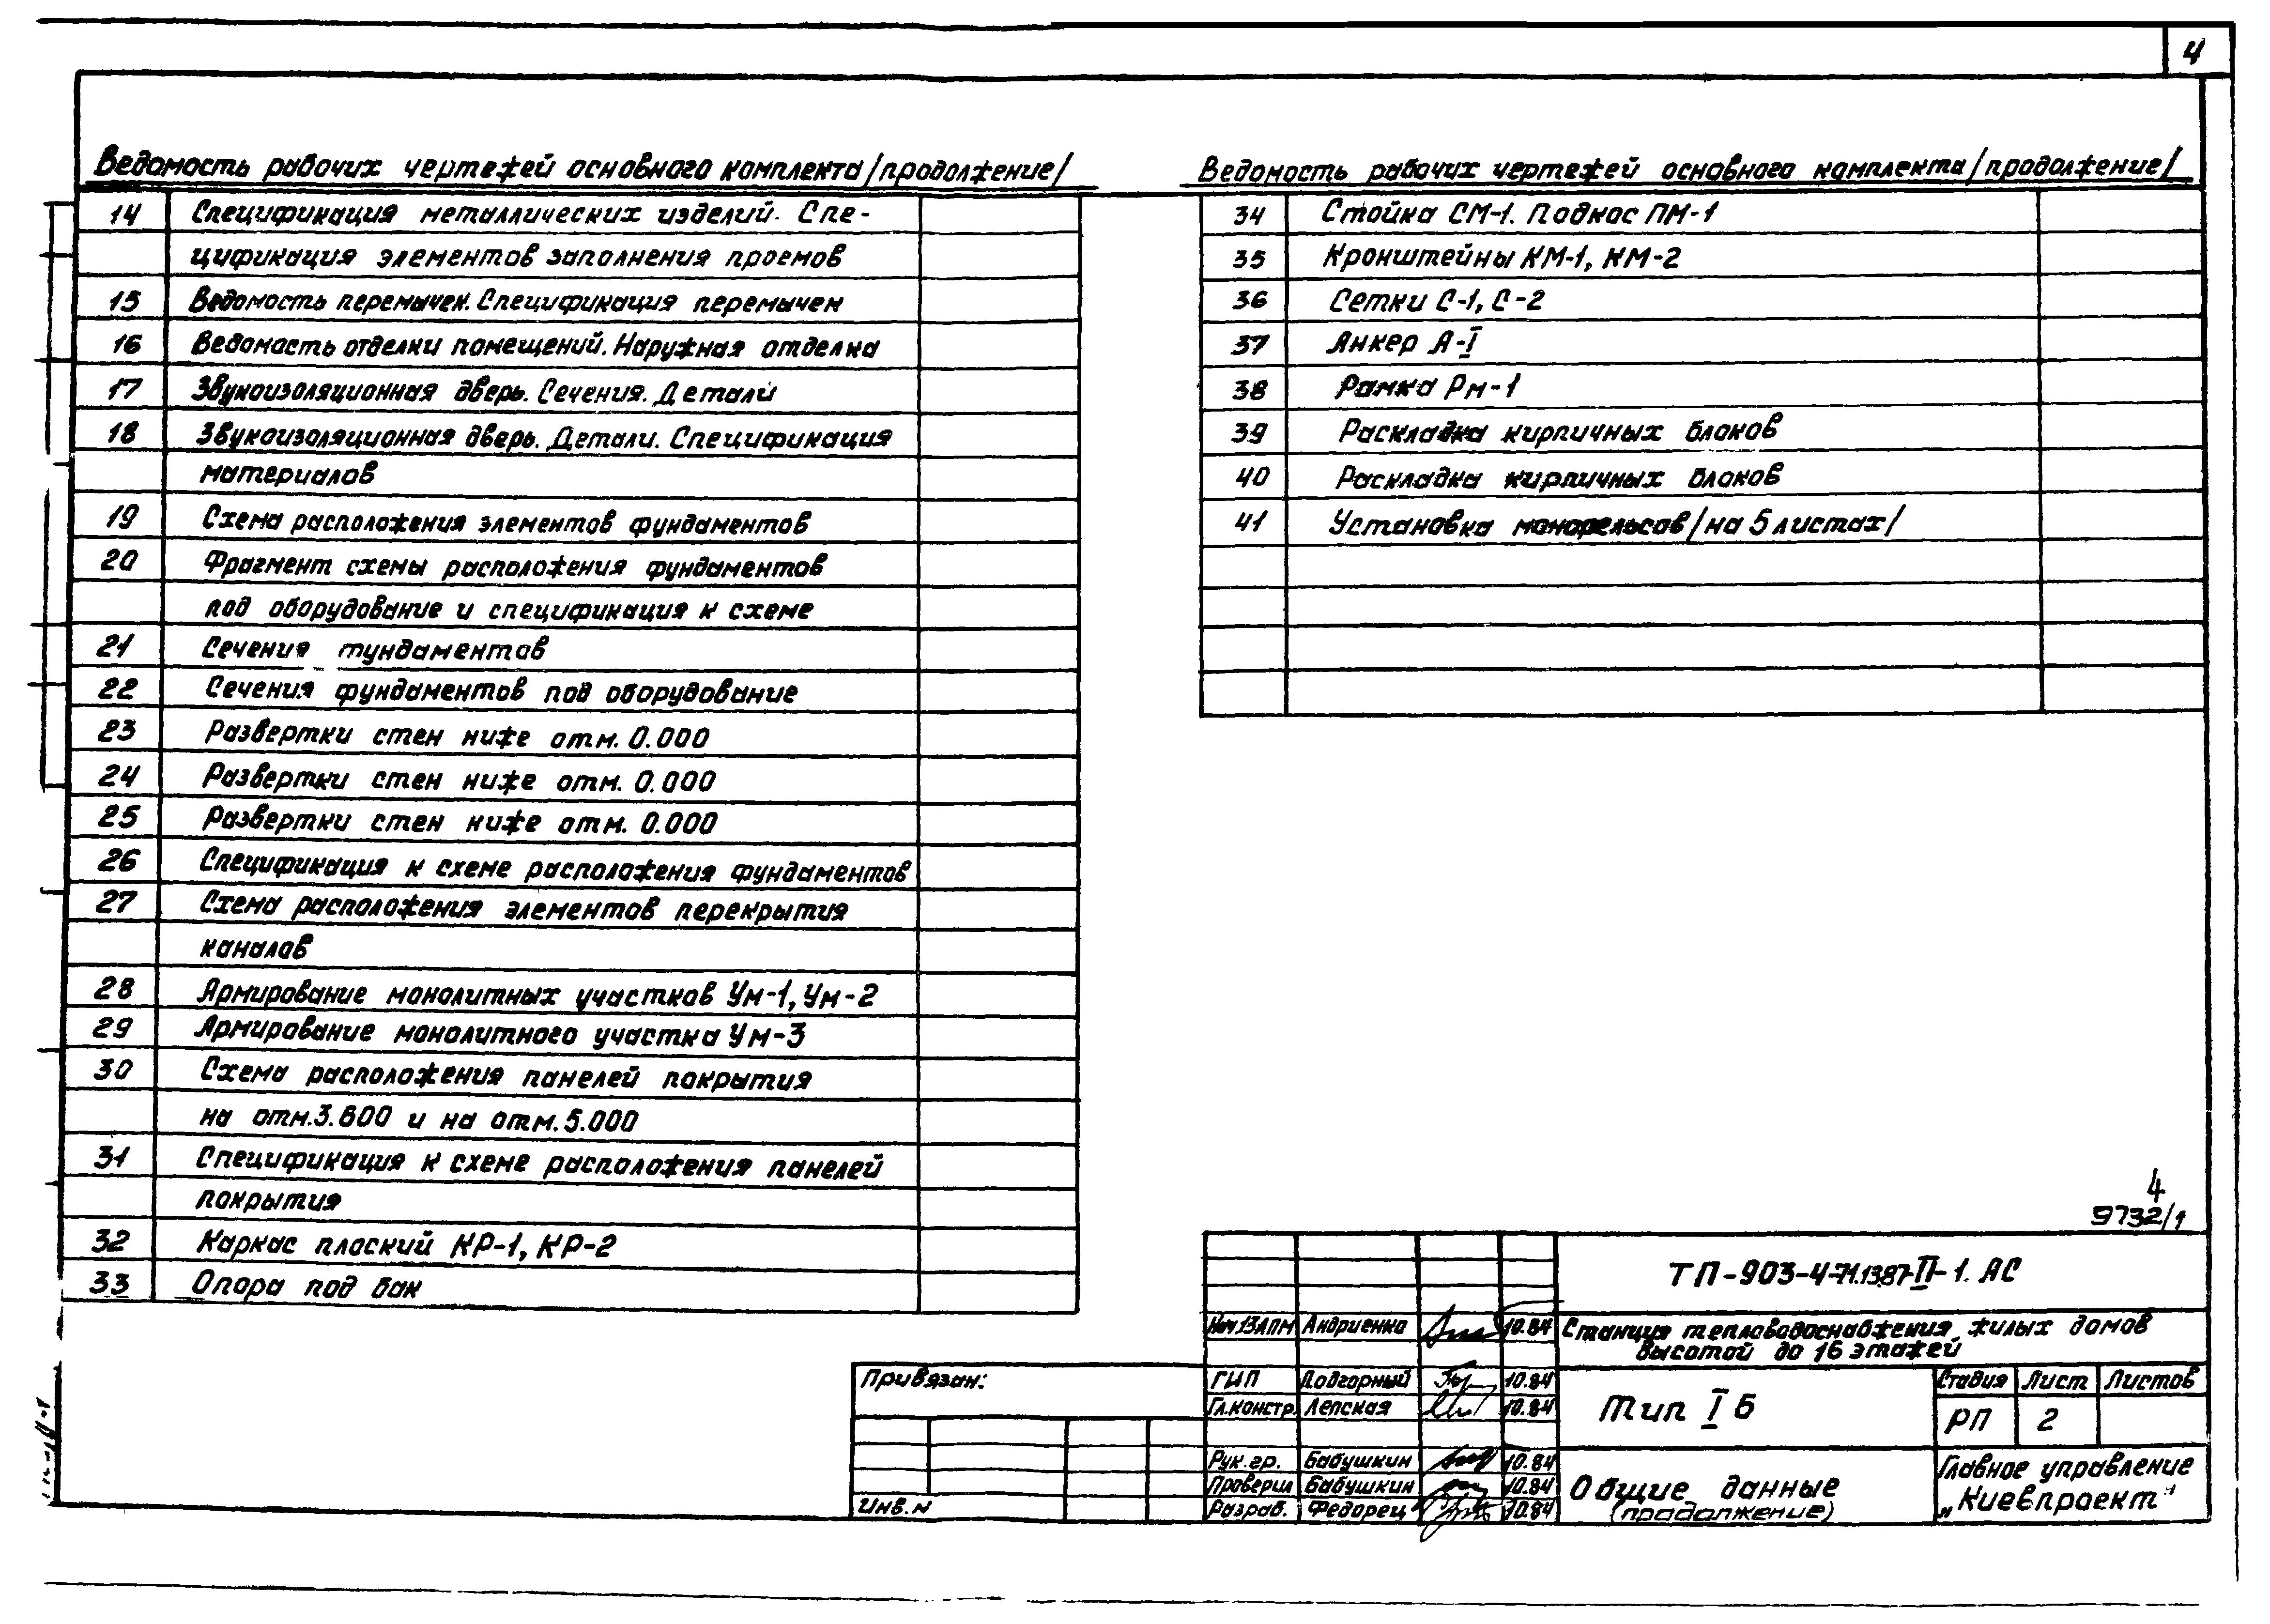 4
Ведомость рабочих чертежей основного комплекта /продолжение/
14 Спецификация металлических изделий. Спе-
цификация элементов заполнения проемов
15 Ведомость перемычек. Спецификация перемычек
16 Ведомость отделки помещений. Наружная отделка
17 Звукоизоляционная дверь. Сечения. Детали
18 Звукоизоляционная дверь. Детали. Спецификация
материалов
19 Схема расположения элементов фундаментов
20 Фрагмент схемы расположения фундаментов
под оборудование и спецификация к схеме
21 Сечения фундаментов
22 Сечения фундаментов под оборудование
23 Развертки стен ниже отм. 0.000
24 Развертки стен ниже отм. 0.000
25 Развертки стен ниже отм. 0.000
26 Спецификация к схеме расположения фундаментов
27 Схема расположения элементов перекрытия
каналов
28 Армирование монолитных участков Ум-1, Ум-2
29 Армирование монолитного участка Ум-3
30 Схема расположения панелей покрытия
на отм. 3.600 и на отм. 5.000
31 Спецификация к схеме расположения панелей
покрытия
32 Каркас плоский КР-1, КР-2
33 Опора под бак
Ведомость рабочих чертежей основного комплекта /продолжение/
34 Стойка СМ-1. Подкос ПМ-1
35 Кронштейны КМ-1, КМ-2
36 Сетки С-1, С-2
37 Анкер А-I
38 Рамка Рм-1
39 Раскладка кирпичных блоков
40 Раскладка кирпичных блоков
41 Установка монорельсов /на 5 листах/
4
9732/1
ТП-903-4-71.13.87-II-1. АС
Нач.13АПМ Андриенко 10.84
Станция тепловодоснабжения жилых домов
высотой до 16 этажей
Привязан:
ГИП Подгорный 10.84
Гл.констр. Лепская 10.84
Тип I Б
Стадия Лист Листов
РП 2
Рук.гр. Бабушкин 10.84
Проверил Бабушкин 10.84
Разраб. Федорец 10.84
Инв.N
Общие данные
(продолжение)
Главное управление
„Киевпроект"